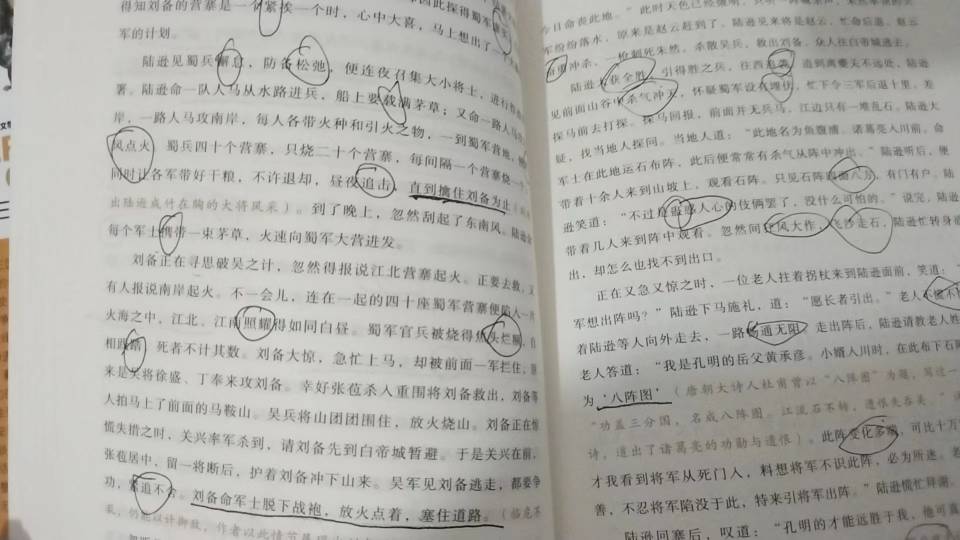 得知刘备的营寨是一个紧挨一个时，心中大喜，马上想出了
军的计划。
陆逊见蜀兵懈怠，防备松弛，便连夜召集大小将士，进行
署。陆逊命一队人马从水路进兵，船上要载满茅草；又命一路人马
岸，一路人马攻南岸，每人各带火种和引火之物，一到蜀军营地，
风点火。蜀兵四十个营寨，只烧二十个营寨，每间隔一个营寨烧一个
同时让各军带好干粮，不许退却，昼夜追击，直到擒住刘备为止
出陆逊成竹在胸的大将风采）。到了晚上，忽然刮起了东南风。陆逊
每个军士携带一束茅草，火速向蜀军大营进发。
刘备正在寻思破吴之计，忽然得报说江北营寨起火。正要去救，又
有人报说南岸起火。不一会儿，连在一起的四十座蜀军营寨便陷入一片
火海之中，江北、江南照耀得如同白昼。蜀军官兵被烧得焦头烂额，自
相践踏，死者不计其数。刘备大惊，急忙上马，却被前面一军拦住，原
来是吴将徐盛、丁奉来攻刘备。幸好张苞杀入重围将刘备救出，刘备等
人拍马上了前面的马鞍山。吴兵将山团团围住，放火烧山。刘备正在惊
慌失措之时，关兴率军杀到，请刘备先到白帝城暂避。于是关兴在前，
张苞居中，留一将断后，护着刘备冲下山来。吴军见刘备逃走，都要争
功，紧追不舍。刘备命军士脱下战袍，放火点着，塞住道路。（临危不
乱，仍能以计御敌，作者以此情节
今日命丧此地。”此时天色已经微明，只听一阵喊杀声，
军纷纷落水，原来是赵云赶到了。陆逊见来将是赵云，忙命后退。赵云
冲杀，一枪刺死朱然，杀散吴兵，救出刘备，众人往白帝城逃去。
陆逊大获全胜，引得胜之兵，往西追袭。追到离夔关不远处，陆逊
见前面山谷中杀气冲天，怀疑蜀军设有埋伏，忙下令三军后退十里，差
探马前去打探。探马回报，前面并无兵马，江边只有一堆乱石。陆逊大
疑，找当地人探问。当地人道：“此地名为鱼腹浦。诸葛亮入川时，命
军士在此地运石布阵，此后便常常有杀气从阵中冲出。”陆逊听后，便
带着十余人来到山坡上，观看石阵。只见石阵四面八方，有门有户。陆
逊笑道：“不过是蛊惑人心的伎俩罢了，没什么可怕的。”说完，陆逊
带着几人来到阵中观看。忽然间狂风大作，飞沙走石，陆逊忙转身欲
出，却怎么也找不到出口。
正在又急又惊之时，一位老人拄着拐杖来到陆逊面前，笑道：“
军想出阵吗？”陆逊下马施礼，道：“愿长者引出。”老人不慌不忙
着陆逊等人向外走去，一路畅通无阻。走出阵后，陆逊请教老人姓
老人答道：“我是孔明的岳父黄承彦。小婿入川时，在此布下石阵
为‘八阵图’（唐朝大诗人杜甫曾以“八阵图”为题，写过一
“功盖三分国，名成八阵图。江流石不转，遗恨失吞吴。”
诗，道出了诸葛亮的功勋与遗恨）。此阵变化多端，可比十万
才我看到将军从死门入，料想将军不识此阵，必为所迷。老
善，不忍将军陷没于此，特来引将军出阵。”陆逊慌忙拜谢。
陆逊回寨后，叹道：“孔明的才能远胜于我，他可真